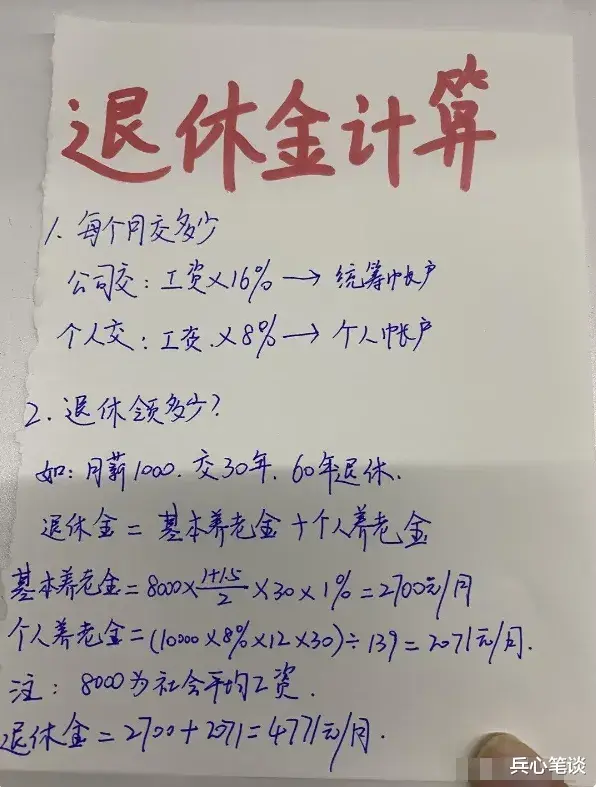 退休金计算
1. 每个月交多少
公司交：工资×16%→统筹帐户
个人交：工资.×8%→个人帐户
2. 退休领多少？
如：月薪1000. 交30年. 60年退休.
退休金=基本养老金+个人养老金
基本养老金=8000×(1+1.5)/2×30×1%=2700元/月
个人养老金=(10000×8%×12×30)÷139=2071元/月.
注：8000为社会平均工资.
退休金=2700+2071=4771元/月.
兵心笔谈